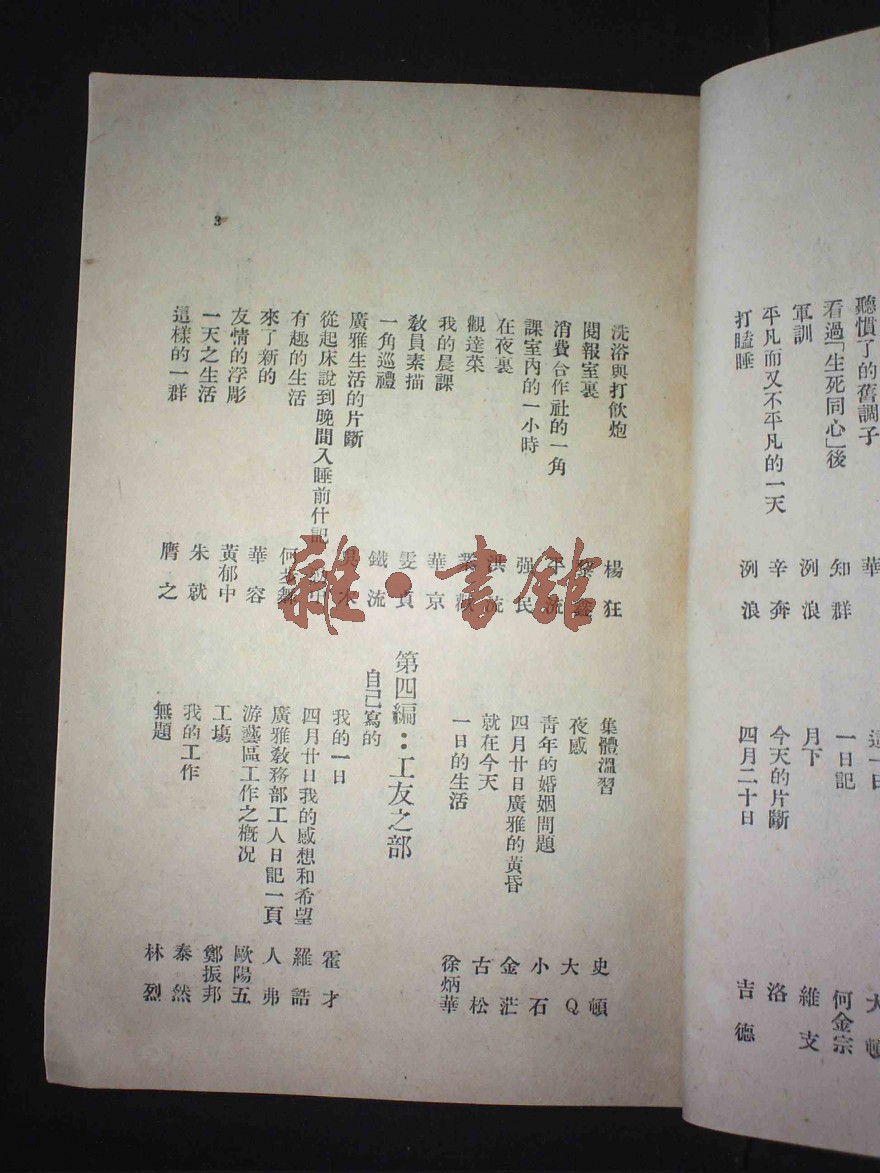 聽慣了的舊調子 華
看過「生死同心」後 知群
軍訓 洌浪
平凡而又不平凡的一天 辛奔
打瞌睡 洌浪
這一日 大頓
一日記 何金宗
月下 維支
今天的片斷 洛
四月二十日 吉德
洗浴與打飲炮 楊狂
閱報室裏 黎鑫
消費合作社的一角 平流
課室內的一小時 强民
在夜裏 洪流
觀達菜
我的晨課 華京
敎員素描 雯貞
一角巡禮 鐵流
廣雅生活的片斷
從起床說到晚間入睡前什記
有趣的生活
來了新的 華容
友情的浮彫 黃郁中
一天之生活 朱就
這樣的一群 膺之
集體溫習 史頓
夜感 大Q
靑年的婚姻問題 小石
四月廿日廣雅的黃昏 金茫
就在今天 古松
一日的生活 徐炳華
第四編：工友之部
自己寫的
我的一日 霍才
四月廿日我的感想和希望 羅誥
廣雅敎務部工人日記一頁 人弗
游藝區工作之槪况 歐陽五
工塲 鄭振邦
我的工作 泰然
無題 林烈
3
雜·書館